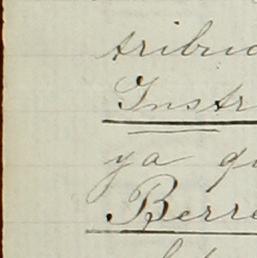 tribuc
Instr
ya qu
Berre